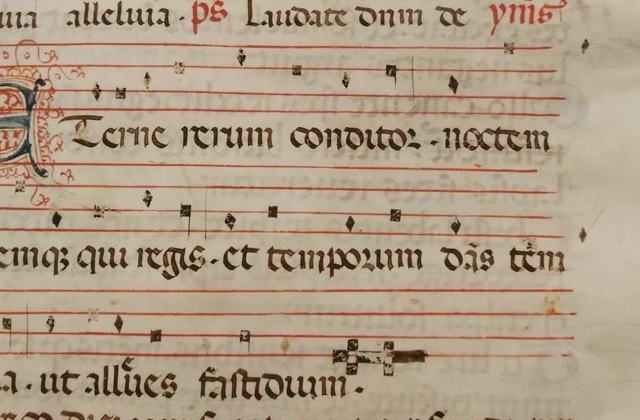 uia alleluia · ps Laudate dnm de ymis
Terne rerum conditor · noctem
emqz qui regis · et temporum das tem
a · ut alleues fastidium ·